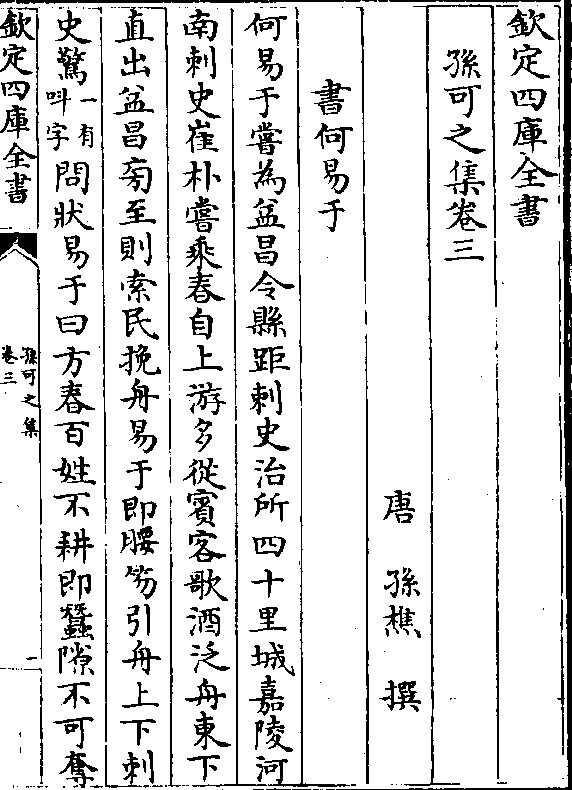 欽定四庫全書
孫可之集卷三
唐 孫樵 撰
書何易于
何易于嘗為益昌令縣距刺史治所四十里城嘉陵河
南刺史崔朴嘗乗春自上游多從賓客歌酒泛舟東下
直出益昌旁至則索民挽舟易于即腰笏引舟上下刺
史驚一有呌字問狀易于曰方春百姓不耕即蠶隙不可奪
欽定四庫全書
孫可之集
卷三
一